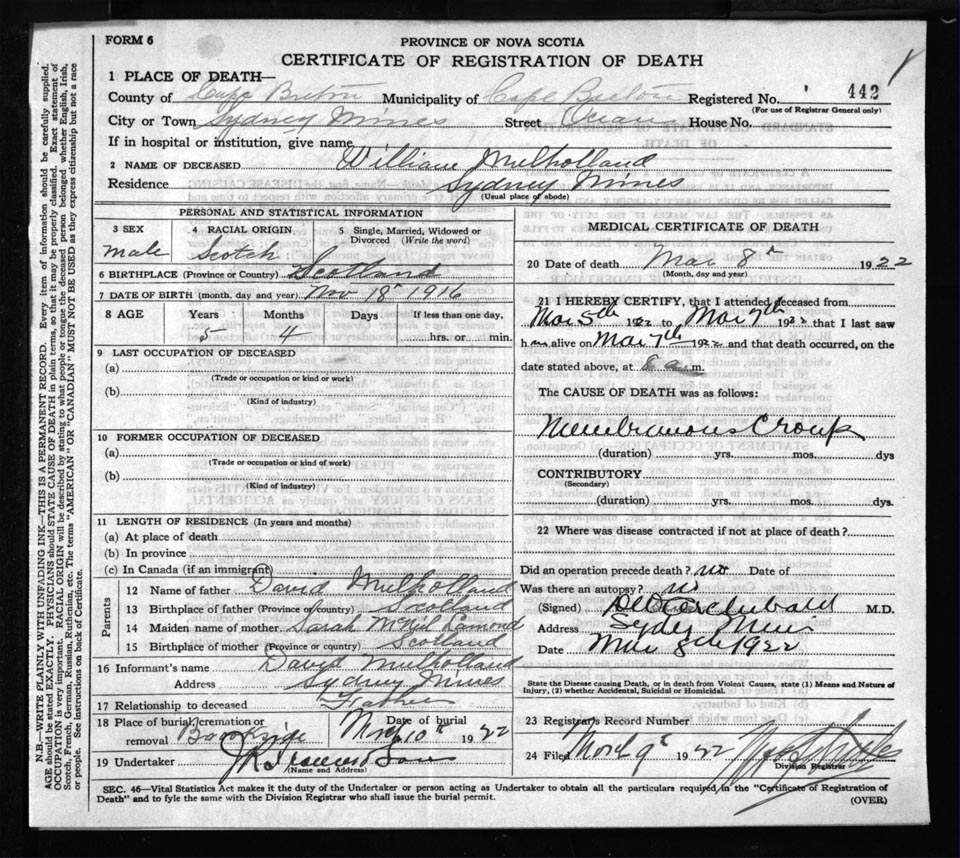 FORM 6
PROVINCE OF NOVA SCOTIA
CERTIFICATE OF REGISTRATION OF DEATH
1 PLACE OF DEATH—
County of Cape Breton Municipality of Cape Breton Registered No. 442
(For use of Registrar General only)
City or Town Sydney Mines Street Ocean House No.
If in hospital or institution, give name
2 NAME OF DECEASED William Mulholland
Residence Sydney Mines
(Usual place of abode)
PERSONAL AND STATISTICAL INFORMATION
3 SEX 4 RACIAL ORIGIN 5 Single, Married, Widowed or
Divorced (Write the word)
male Scotch
6 BIRTHPLACE (Province or Country) Scotland
7 DATE OF BIRTH (month, day and year) Nov 18th 1916
8 AGE Years Months Days If less than one day,
5 4 hrs. or min.
9 LAST OCCUPATION OF DECEASED
(a)
(Trade or occupation or kind of work)
(b)
(Kind of industry)
10 FORMER OCCUPATION OF DECEASED
(a)
(Trade or occupation or kind of work)
(b)
(Kind of industry)
11 LENGTH OF RESIDENCE (In years and months)
(a) At place of death
(b) In province
(c) In Canada (if an immigrant)
Parents
12 Name of father David Mulholland
13 Birthplace of father (Province or country) Scotland
14 Maiden name of mother Sarah McNil Lamond
15 Birthplace of mother (Province or country) Scotland
16 Informant's name David Mulholland
Address Sydney Mines
17 Relationship to deceased Father
18 Place of burial, cremation or Date of burial
removal Brookside 10th 1922
19 Undertaker
(Name and Address)
MEDICAL CERTIFICATE OF DEATH
20 Date of death Mar 8th 1922
(Month, day and year)
21 I HEREBY CERTIFY, that I attended deceased from
Mar 5th 1922 to Mar 7th 1922 that I last saw
h alive on Mar 7th 1922 and that death occurred, on the
date stated above, at 8 a.m.
The CAUSE OF DEATH was as follows:
Membranous Croup
(duration) yrs. mos. dys
CONTRIBUTORY
(Secondary)
(duration) yrs. mos. dys.
22 Where was disease contracted if not at place of death?
Did an operation precede death? no Date of
Was there an autopsy? no
(Signed) Archibald M.D.
Address Sydney Mines
Date Mar 8th 1922
State the Disease causing Death, or in death from Violent Causes, state (1) Means and Nature of
Injury, (2) whether Accidental, Suicidal or Homicidal.
23 Registrar's Record Number
24 Filed March 9th 1922
Division Registrar
SEC. 46—Vital Statistics Act makes it the duty of the Undertaker or person acting as Undertaker to obtain all the particulars required in the "Certificate of Registration of
Death" and to fyle the same with the Division Registrar who shall issue the burial permit.
(OVER)
N.B.—WRITE PLAINLY WITH UNFADING INK—THIS IS A PERMANENT RECORD. Every item of information should be carefully supplied.
AGE should be stated EXACTLY. PHYSICIANS should STATE CAUSE OF DEATH in plain terms, so that it may be properly classified. Exact statement of
OCCUPATION is very important. RACIAL ORIGIN will be described by stating to what people or tongue the deceased person belonged, whether English, Irish,
Scotch, French, German, Russian, Ruthenian, etc. The terms "AMERICAN" or "CANADIAN" MUST NOT BE USED as they express citizenship but not a race
or people. See instructions on back of Certificate.